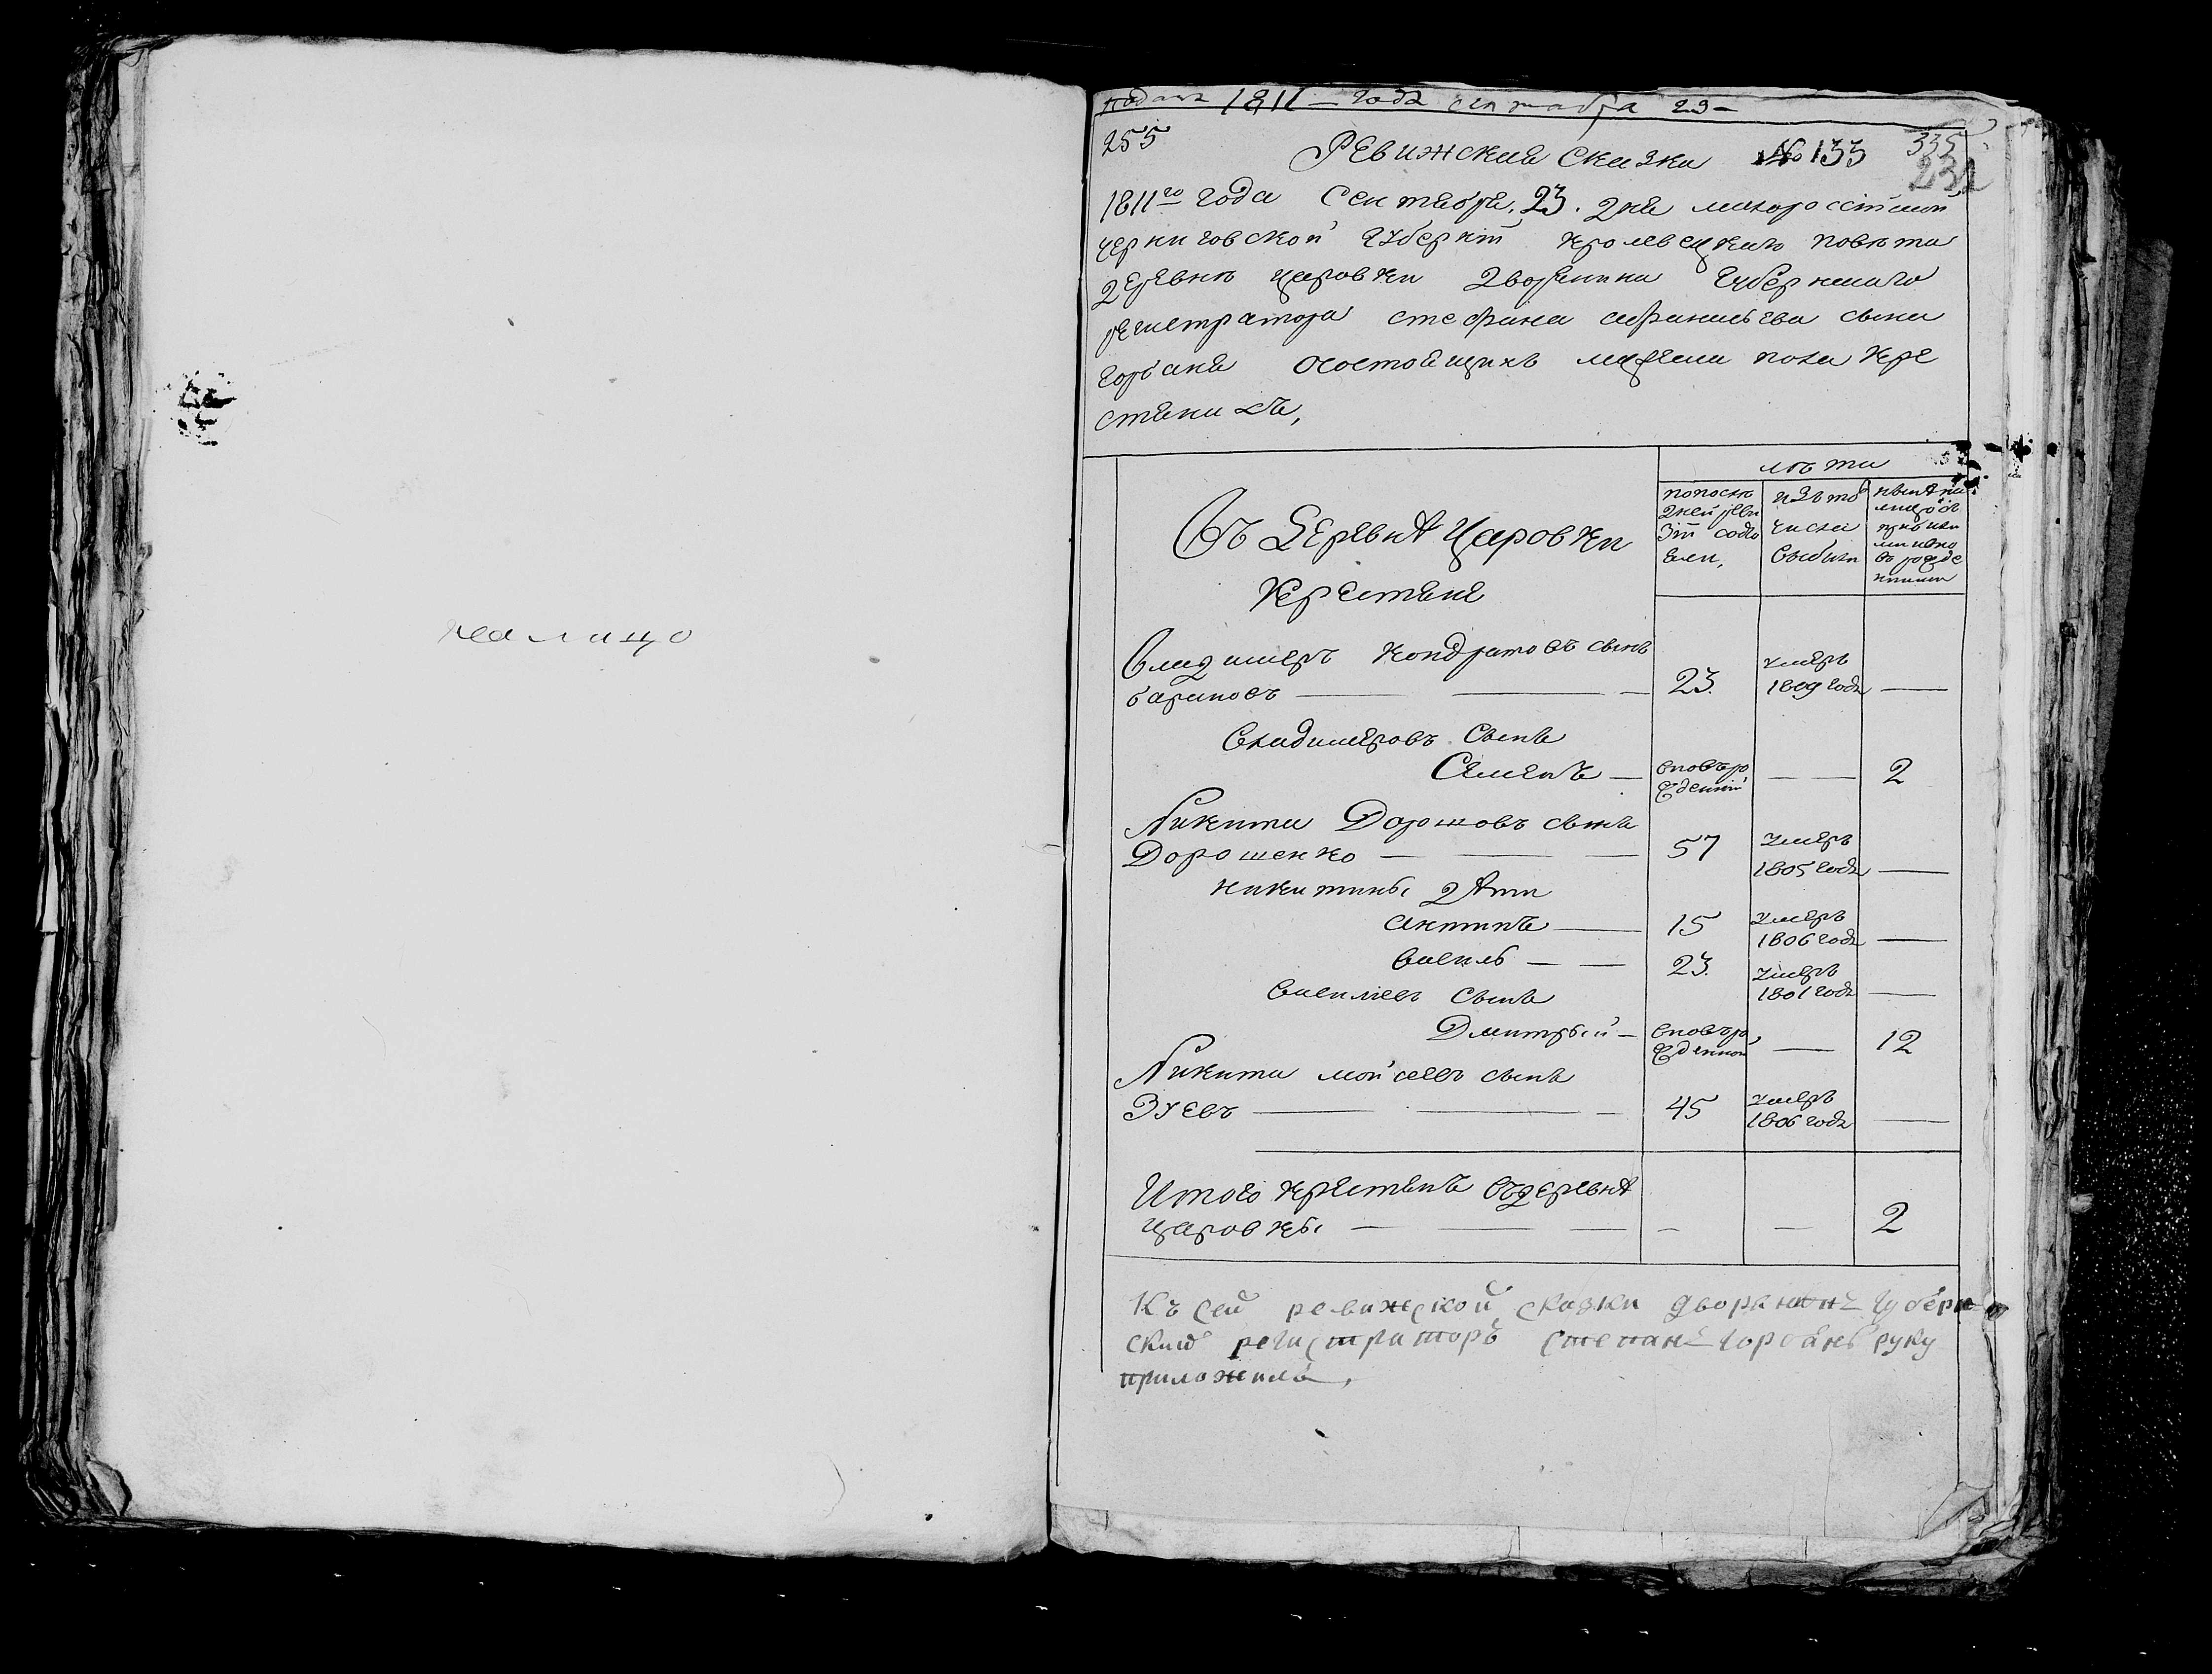 налицо
подана 1811 – года сентября 23 –
255
Ревижская Сказка № 133
335
232
1811го года Сентября. 23. дня малороссійской
черниговской губерніи кролевецкаго повѣта
деревнѣ царовки дворянина губернскаго
регистратора стефана афанасьева сына
горбаня осостоящихъ мужеска пола кре
стянахъ,
лѣта
Въ Деревнѣ Царовки
Крестяне
попослѣ
дней реви
зіи состо
яли,
изъ то
числа
выбыли
Владимеръ Кондратовъ сынъ
бариновъ — — —
23.
умеръ
1809 года
—
Владимеровъ Сынъ
Семенъ —
вновьро
жденній
— —
2
Никита Дорошовъ сынъ
Дорошенко — — —
57
умеръ
1805 года
—
никитины дѣти
антипъ —
15
умеръ
1806 года
—
василь — —
23.
умеръ
1801 года
—
василіевъ Сынъ
Дмитрый —
вновьро
жденной
—
12
Никита мойсеевъ сынъ
Зуевъ — — —
45
умеръ
1806 года
—
Итого крестянъ въдеревнѣ
царовкы — — —
–
—
2
Къ сей ревижской сказки дворянинъ Губерн
скій регистраторъ Степанъ Горбань руку
приложилъ,